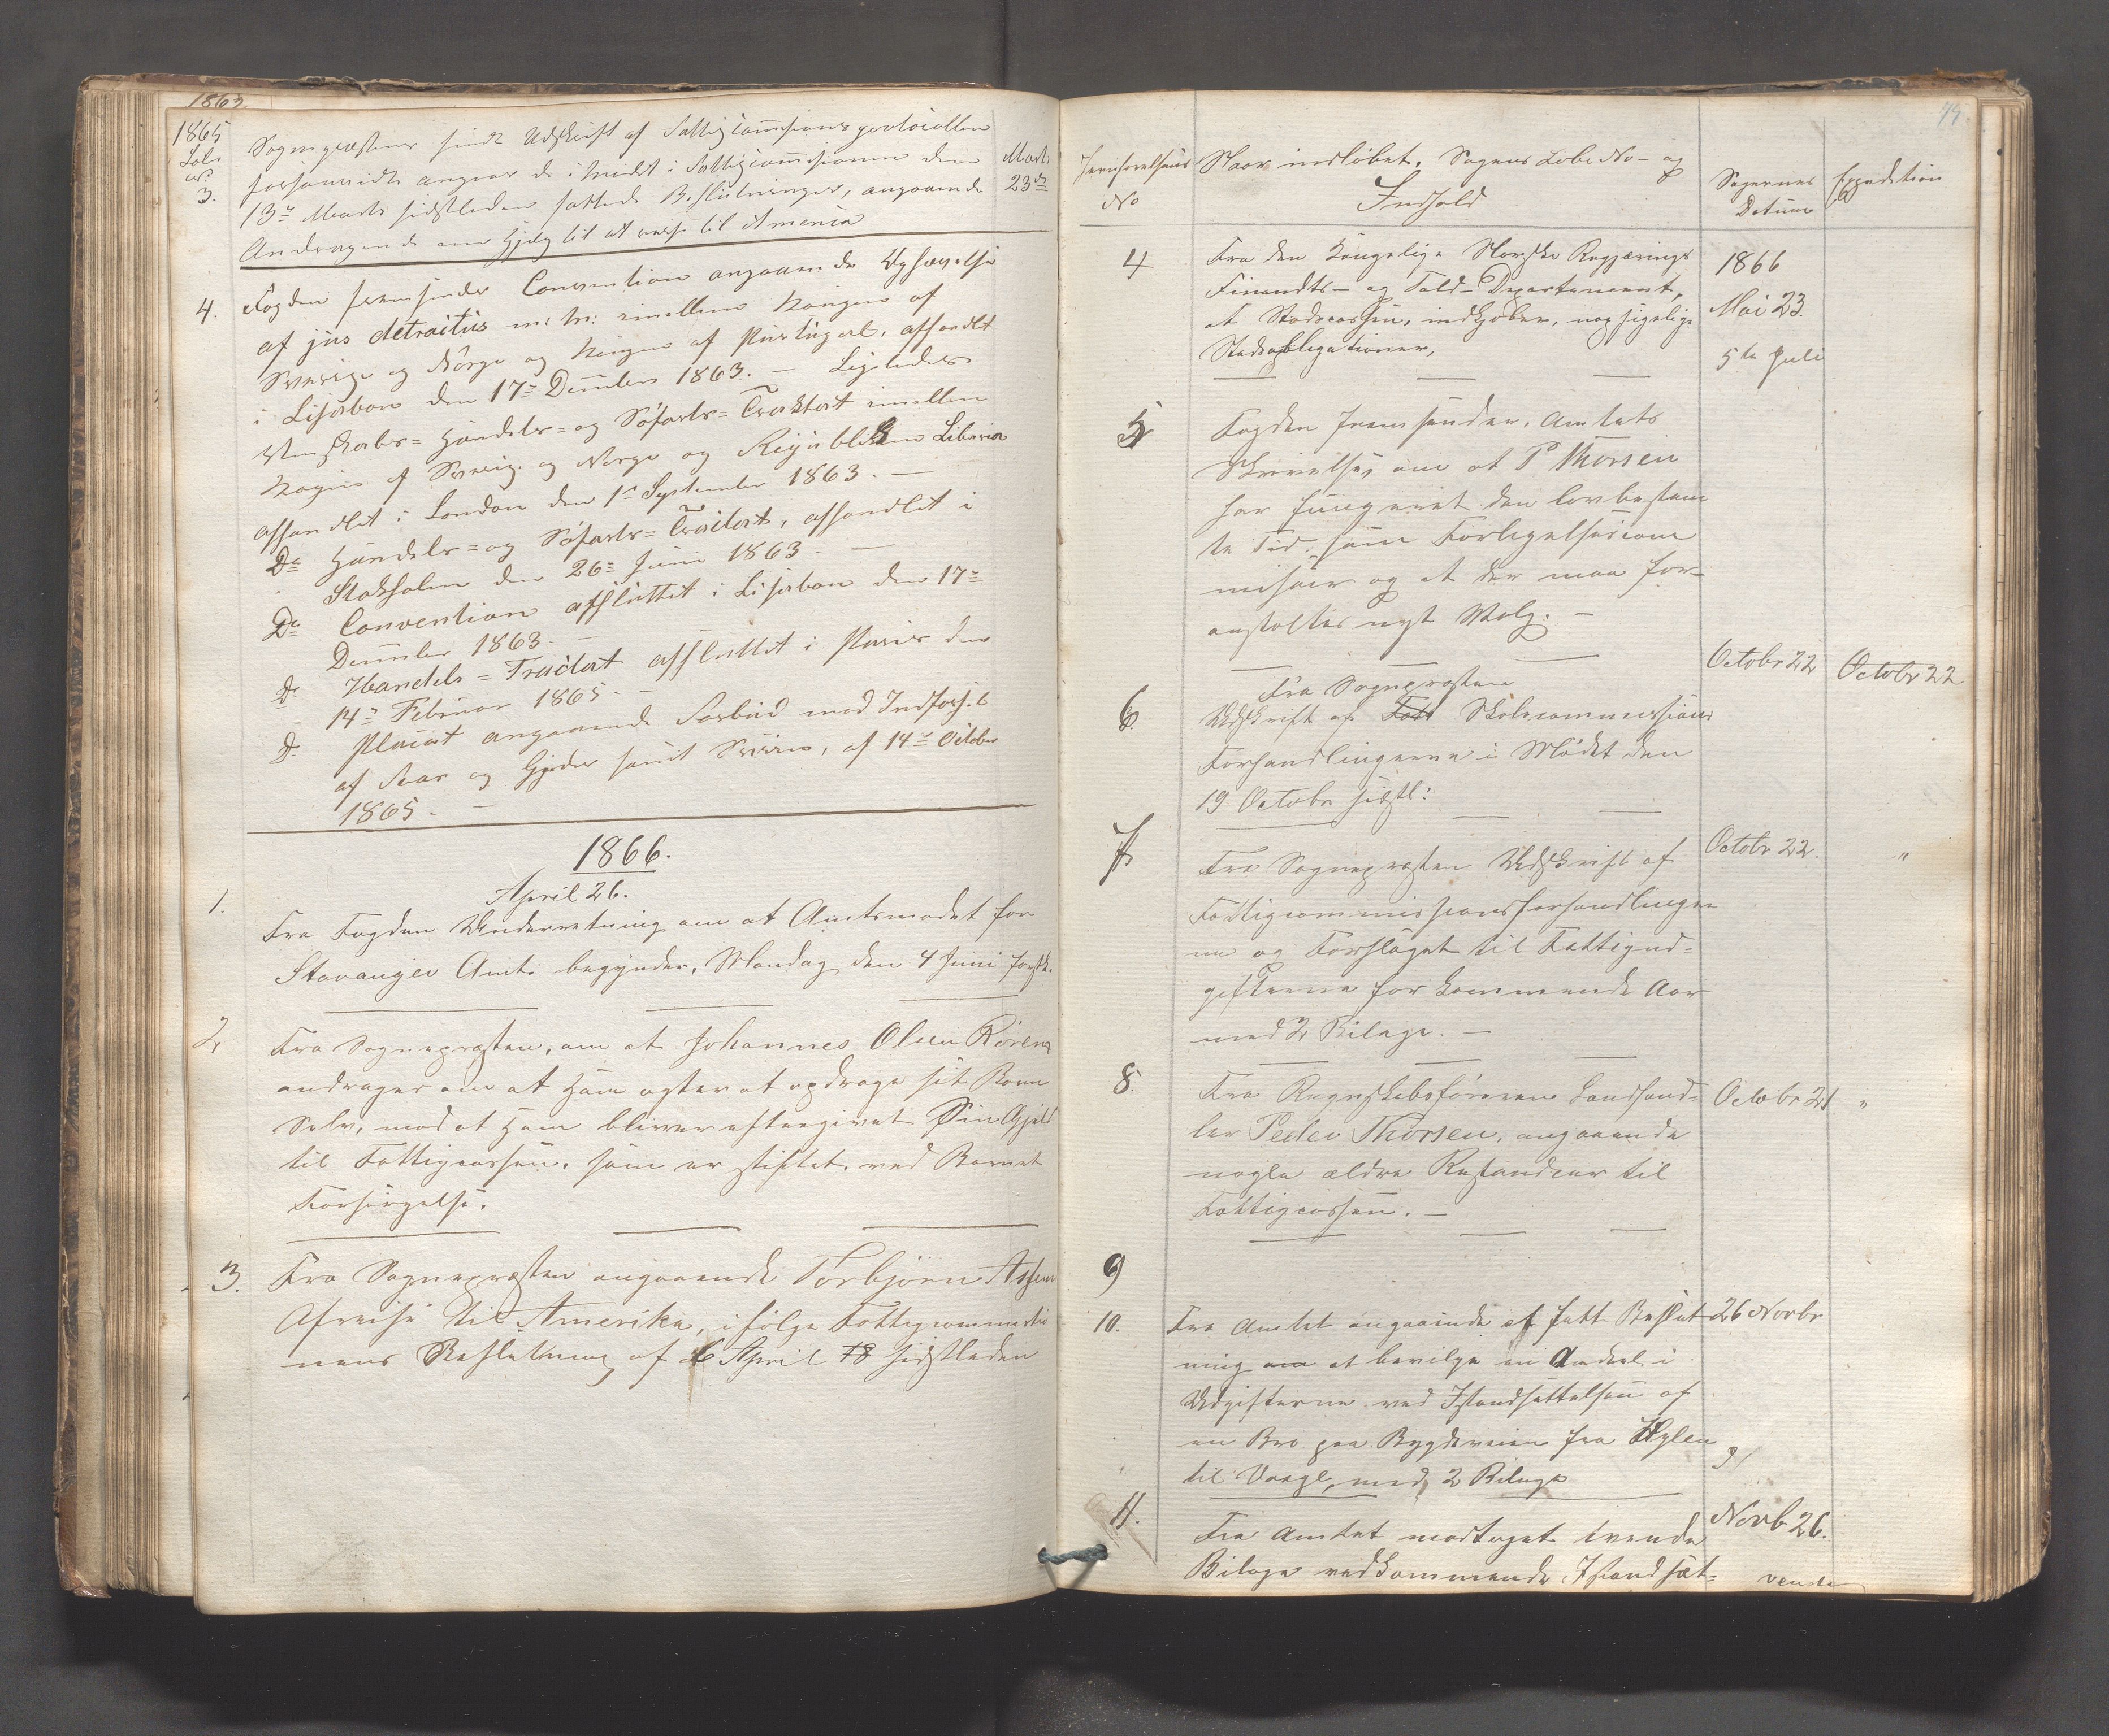 1863
1865
Løbe
No.
3.
Sognepræsten sendt Udskrift af Fattigcommissionsprotocollen
forsaavidt angaar de i Mødet i Fattigcommissionen den
13de Marts sidstleden fattede Beslutninger, angaaende
Andragende om Hjelp til at reise til America
Marts
23de
4. Fogden fremsender Convention angaaende Ophævelse
af jus detractus m: m: imellem Kongen af
Sverige og Norge og Kongen af Purtugal, afhandlet
i Lissabon den 17de Decembr 1863. — Ligeledes
Venskabs= Handels= og Søfarts= Tracktat imellem
Kongen af Sverige og Norge og Republikken Liberia
afhandlet i London den 1ste September 1863. —
Do Handels= og Søfarts= Tractat, afhandlet i
Stokholm den 26de Juni 1863. —
Do Convention afsluttet i Lissabon den 17de
Decembr 1863. —
Do Handels= Tractat afsluttet i Paris den
14de Februar 1865. —
Do Placat angaaende Forbud mod Indførsel
af Faar og Gjeder samt Sviin, af 14de October
1865. —
1866.
April 26.
1. Fra Fogden Underretning om at Amtsmødet for
Stavanger Amt begynder, Mandag den 4 Juni førstk.
2 Fra Sognepræsten, om at Johannes Olsen
andrager om at Han agter at opdrage sit Barn
Selv, mod at Ham bliver eftergivet Sin Gjeld
til Fattigcassen, som er stiftet ved Barnet
Forsørgelse.
3. Fra Sognepræsten angaaende Torbjørn
Afreise til Amerika, ifølge Fattigcommissio
nens Beslutning af 6 April 18 sidstleden
Jevnførelses
No
Naar indløbet, Sagens Løbe No- og
Indhold
Sagernes
Datum
Expedition
4 Fra den Kongelige Norske Regjerings
Finandts- og Told- Departement,
at Statscassen, indkjøber, nogle
Statsobligationer,
1866
Mai 23.
5te Juli
5 Fogden fremsender, Amtets
Skrivelse, om at P Thorsen
har fungeret den lovbestem
te Tid, som Forligelsescom
misær og at der maa for-
anstaltes nyt Valg. —
6. Fra Sognepræsten
Udskrift af Fatt Skolecommissions
Forhandlingerne i Mødet den
19 Octobr sidstl:
Octobr 22
Octobr 22
7 Fra Sognepræsten Udskrift af
Fattigcommissionsforhandlinger
ne og Forslaget til Fattigud=
gifterne for kommende Aar
med 2 Bilage. —
Octobr 22.
"
8. Fra Regnskabsføreren Landhand=
ler Peder Thorsen, angaaende
nogle ældre Restancer til
Fattigcassen. —
Octobr 21
"
9
10. Fra Amtet angaaende at fatt Beslut
ning om at bevilge en Andeel i
Udgifterne ved Istandsættelsen af
en Bro paa Bygdeveien fra Hylen
til Vaage, med 2 Bilage
26 Novbr
11. Fra Amtet modtaget tvende
Bilage vedkommende Istandsæt=
Novb 26.
vende